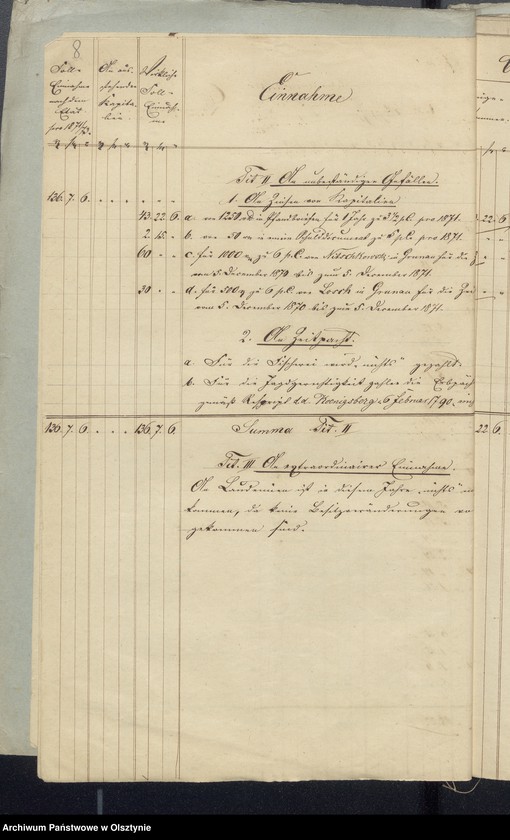 8
Soll-
Einnahme
nach dem
Etat
pro 1871/73.
An aus-
stehenden
Kapita-
lien.
Wirkliche
Soll-
Einnah-
me
Einnahme
Tit II An unbeständigen Gefällen.
1. An Zinsen von Kapitalien
136. 7. 6.
43. 22. 6. a. von 1250 in Pfandbriefen für 1 Jahr zu 3 1/2 p.C. pro 1871.
2. 15. - b. von 50 zu 5 p.C. pro 1871.
60 - - c. für 1000 zu 6 p.C. von in Grunau für die Z
vom 5. December 1870 bis zum 5. December 1871.
30 - - d. für 500 zu 6 p.C. von in Grunau für die Zei
vom 5. December 1870 bis zum 5. December 1871.
2. An Zeitpacht.
a. Für die Fischerei wird "nichts" gezahlt.
b. Für die Jagdgerechtigkeit zahlen die Erbpäch
gemäß d.d. Koenigsberg 6 Februar 1790.
136. 7. 6. 136. 7. 6. Summa Tit. II
Tit. III An extraordinairer Einnahme.
An Laudemien ist in diesem Jahre "nichts"
kommen, da keine Besitzveränderungen vo
gekommen sind.
22. 6
22. 6.
Archiwum Państwowe w Olsztynie